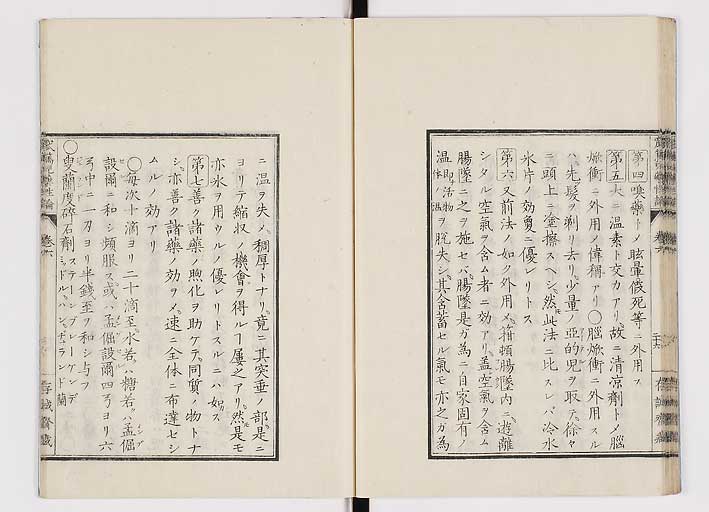 第四嗅藥トメ眩暈假死等ニ外用ス
第五大ニ温素ト交力アリ故ニ清凉劑トメ腦
焮衝ニ外用メ偉稱アリ〇腦焮衝ニ外用スル
ハ先髮ヲ剃リ去リ少量ノ亞的兒ヲ取テ徐々
ニ頭上ニ塗擦スヘシ然𪜈此法ニ比スレバ冷水
氷片ノ功効更ニ優レリトス
第六又前法ノ如ク外用メ箝頓腸墜内ニ遊離
シタル空氣ヲ含ム者ニ効アリ蓋空氣ヲ含ム
腸墜ニ之ヲ施セバ腸墜是ガ為ニ自家固有ノ
温即活物体温ヲ脱失シ其含蓄セル氣モ亦之ガ為
ニ温ヲ失ヘ稠厚トナリ竟ニ其突垂ノ部是ニ
ヨリテ縮收ノ機會ヲ得ルヿ屢之アリ然𪜈是モ
亦氷ヲ用ウルノ優レリトスルニハ如ズ
第七善ク諸藥ノ煦化ヲ助ケテ同質ノ物トナ
シ亦善ク諸藥ノ効ヲメ速ニ全体ニ布達セシ
ムルノ効アリ
〇毎次十滴ヨリ二十滴至水若ハ糖若ハ孟倔
設爾ニ和シ頻服ス或ハ孟倔設爾四弓ヨリ六
弓中ニ一刀ヨリ半錢至ヲ和シ与フ
〇臾蘭度碎石劑ステーンブレーケンデミッドルハンヂュランド蘭